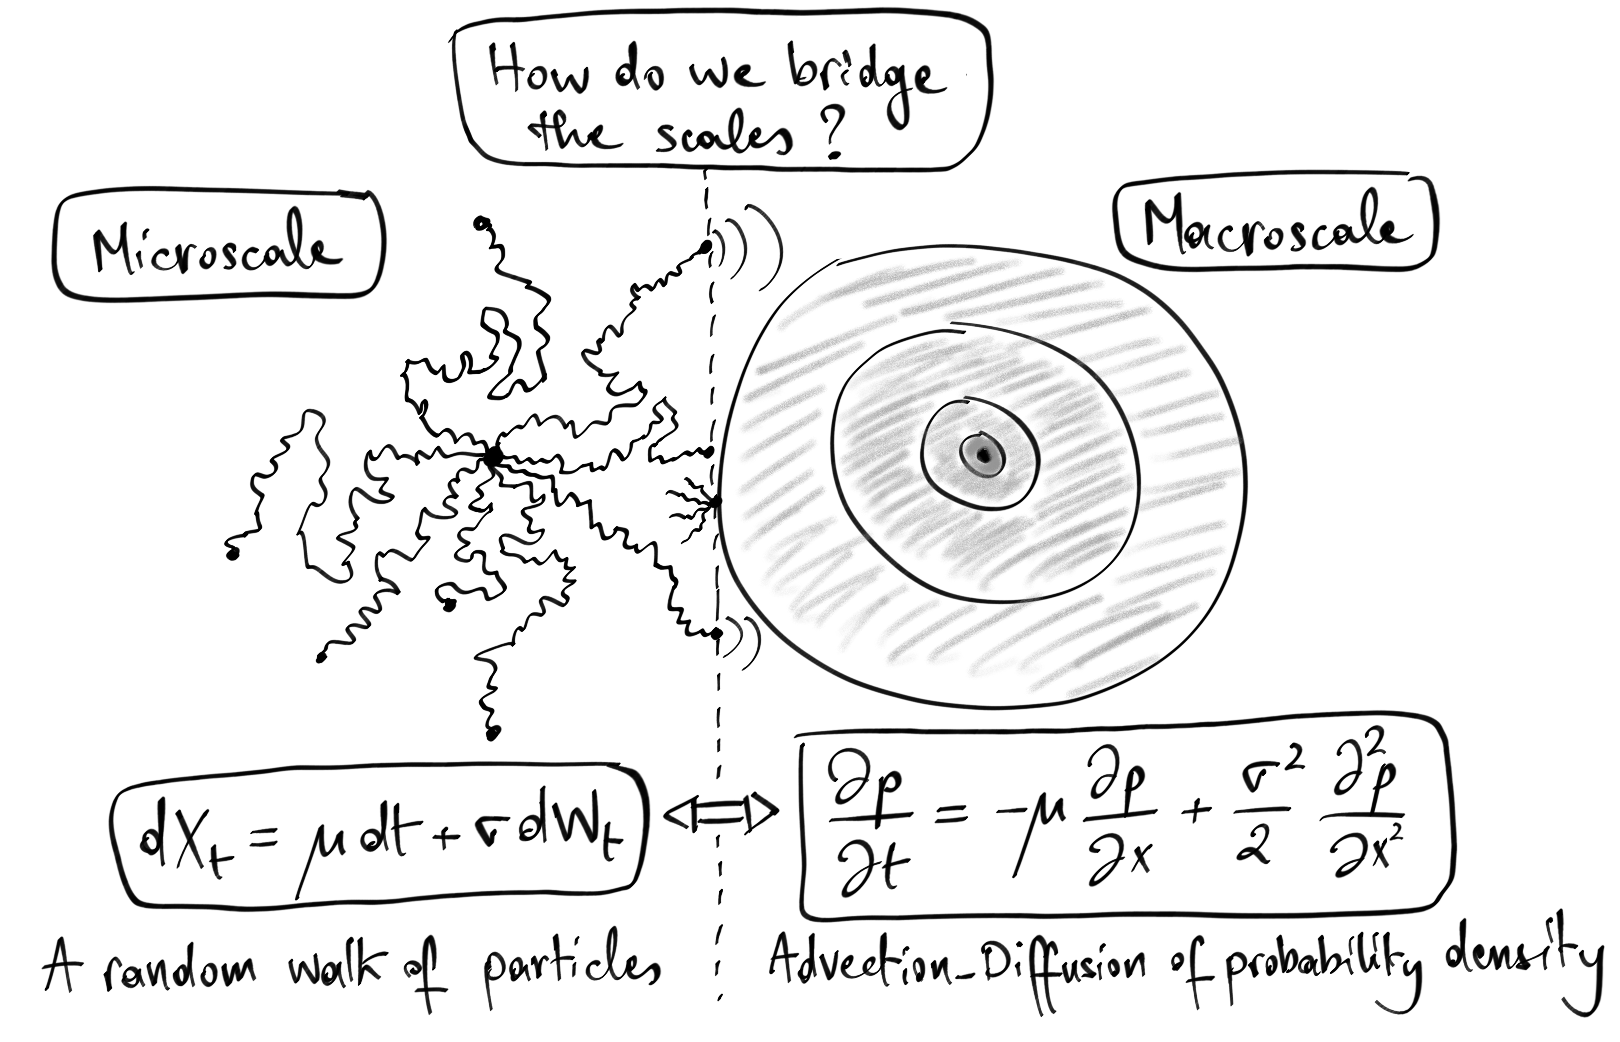 How do we bridge
the scales?
Microscale
Macroscale
dX_t = μdt + σdW_t
∂p/∂t = -μ ∂p/∂x + σ²/2 ∂²p/∂x²
A random walk of particles
Advection-Diffusion of probability density